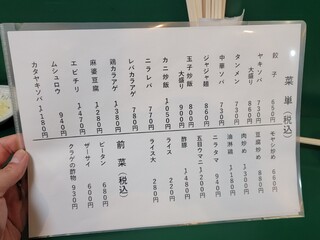 菜単(税込)
餃子 650円
ヤキソバ 730円
大盛り 860円
タンメン 730円
中華ソバ 730円
ジャジャ麺 860円
玉子炒飯 800円
大盛り 900円
カニ炒飯 1,050円
ニラレバ 770円
レバカラアゲ 780円
鶏カラアゲ 1,380円
麻婆豆腐 1,280円
エビチリ 1,470円
ムシュロウ 940円
カタヤキソバ 1,180円
モヤシ炒め 660円
豆腐炒め 880円
肉炒め 1,300円
清淋鶏 1,180円
ニラタマ 940円
五目ウマニ 1,200円
酢豚 1,480円
ライス 220円
ライス大 280円
前菜(税込)
ピータン 680円
ザーサイ 600円
クラゲの酢物 930円